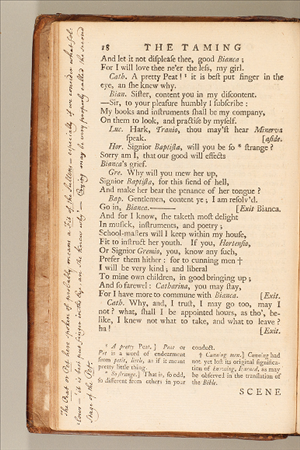 18 THE TAMING
And let it not diſpleaſe thee, good Bianca;
For I will love thee ne'er the leſs, my girl.
Cath. A pretty Peat! ¹ it is beſt put finger in the
eye, an ſhe knew why.
Bian. Siſter, content you in my diſcontent.
—Sir, to your pleaſure humbly I ſubſcribe:
My books and inſtruments ſhall be my company,
On them to look, and practiſe by myſelf.
Luc. Hark, Tranio, thou may'ſt hear Minerva
ſpeak. [aſide.
Hor. Signior Baptiſta, will you be ſo * ſtrange?
Sorry am I, that our good will effects
Bianca's grief.
Gre. Why will you mew her up,
Signior Baptiſta, for this fiend of hell,
And make her bear the penance of her tongue?
Bap. Gentlemen, content ye; I am reſolv'd.
Go in, Bianca.——— [Exit Bianca.
And for I know, ſhe taketh moſt delight
In muſick, inſtruments, and poetry;
School-maſters will I keep within my houſe,
Fit to inſtruct her youth. If you, Hortenſio,
Or Signior Gremio, you, know any ſuch,
Prefer them hither: for to cunning men †
I will be very kind; and liberal
To mine own children, in good bringing up;
And ſo farewel: Catharina, you may ſtay,
For I have more to commune with Bianca. [Exit.
Cath. Why, and, I truſt, I may go too, may I
not? what, ſhall I be appointed hours, as tho', be-
like, I knew not what to take, and what to leave?
ha! [Exit.
¹ A pretty Peat.] Peat or
Pet is a word of endearment
from petit, little, as if it meant
pretty little thing.
* So ſtrange.] That is, ſo odd,
ſo different from others in your
conduct.
† Cunning men.] Cunning had
not yet loſt its original ſignifica-
tion of knowing, learned, as may
be obſerved in the tranſlation of
the Bible.
SCENE
The Peat or Pet here spoken of probably means a Fit of the Sullens — especially if we consider what fol-
lows — "it is best put finger in the Eye an she knew why" — Crying may be very properly called the second
Stage of the Pet.